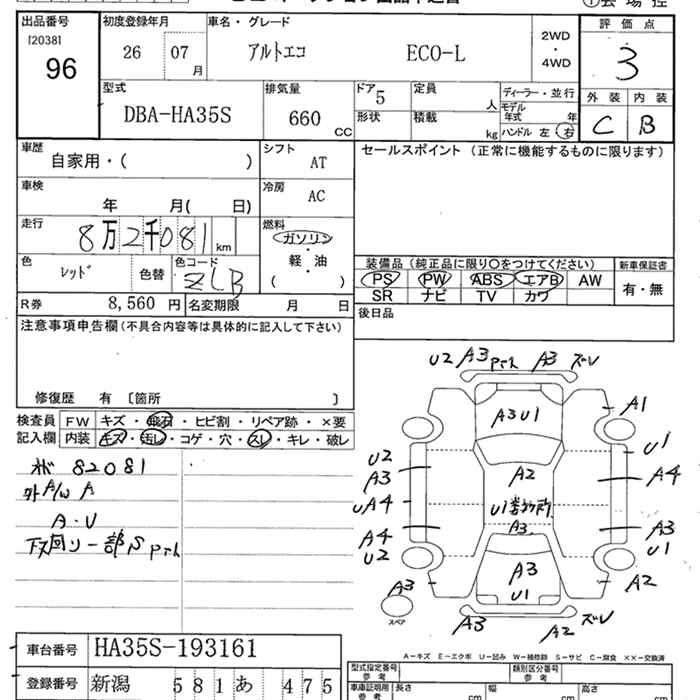 出品番号 初度登録年月 車名・グレード 評価点
[2038]
96 26 07 月 アルトエコ ECO-L 2WD・4WD 3
型式 排気量 ドア 5 定員 人 ディーラー・並行 外装 内装
DBA-HA35S 660 CC 形状 積載 kg モデル年式 年 C B
ハンドル 左 右
車歴 自家用・( ) シフト AT セールスポイント(正常に機能するものに限ります)
車検 年 月( 日) 冷房 AC
走行 8万2千081 km 燃料 ガソリン
軽・油
( )
色 レッド 色替 色コード ZLB 装備品(純正品に限り〇をつけてください) 新車保証書
PS PW ABS エアB AW 有・無
SR ナビ TV カワ
R券 8,560 円 名変期限 月 日 後日品
注意事項申告欄(不具合内容等は具体的に記入して下さい)
修復歴 有 〔箇所 〕
検査員 FW キズ・飛石・ヒビ割・リペア跡・×要
記入欄 内装 キズ・汚レ・コゲ・穴・スレ・キレ・破レ
82081
外A/W A
A・U
下回リ一部S
U2 A3 A3 ズレ
A3U1 A1
U2 A2 U1
A3 A4
UA4 U1
A4 A3 A3
U2 U1
A3 A3 A2
U1
スペア A3 ズレ
A-キズ E-エクボ U-凹み W-補修跡 S-サビ C-腐食 ××-交換済
車台番号 HA35S-193161
型式指定番号 参考 類別区分番号 参考
登録番号 新潟 581 あ 475
車庫証明用 参考 長さ 幅 高さ